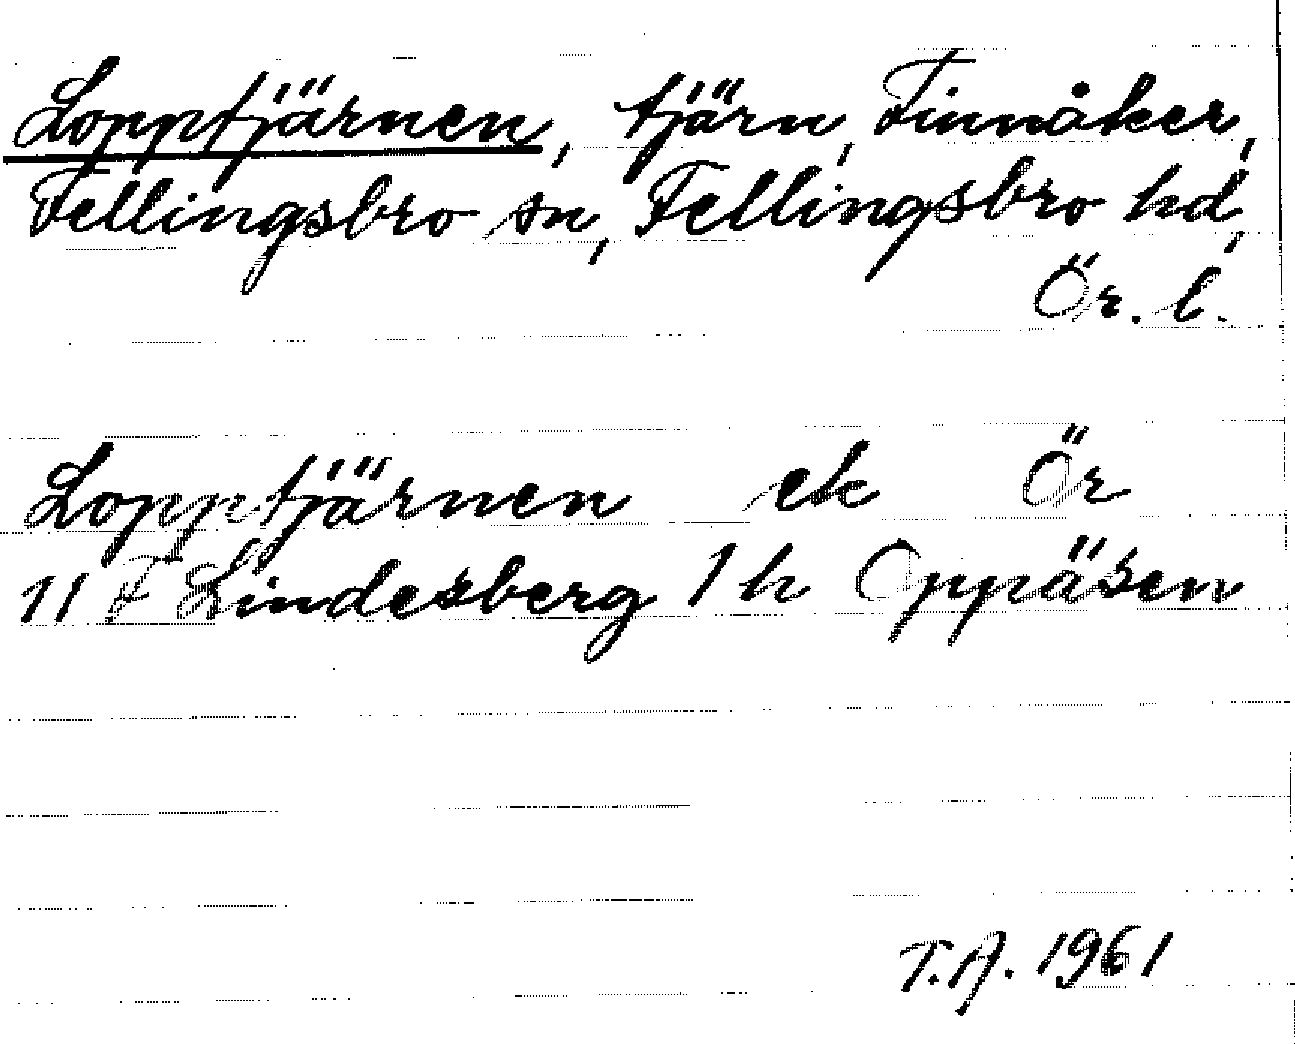 Lopptjärnen, tjärn, Finnåker,
Fellingsbro sn, Fellingsbro hd,
Ör. l.
Lopptjärnen ek Ör
11 F Lindesberg 1 h Oppåsen
T.A. 1961